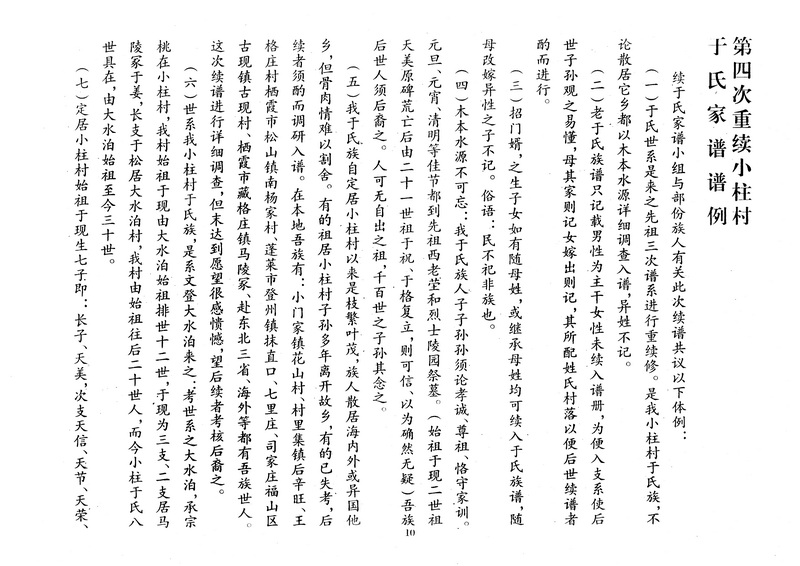 第四次重续小柱村
于氏家谱谱例
续于氏家谱小组与部份族人有关此次续谱共议以下体例：
（一）于氏世系是来之先祖三次谱系进行重续修。是我小柱村于氏族，不
论散居它乡都以木本水源详细调查入谱，异姓不记。
（二）老于氏族谱只记载男性为主干女性未续入谱册，为便入支系使后
世子孙观之易懂，母其家则记女嫁出则记，其所配姓氏村落以便后世续谱者
酌而进行。
（三）招门婿，之生子女如有随母姓，或继承母姓均可续入于氏族谱，随
母改嫁异性之子不记。俗语：民不祀非族也。
（四）木本水源不可忘：我于氏族人子子孙孙须论孝诚、尊祖、恪守家训。
元旦、元宵、清明等佳节都到先祖西老茔和烈士陵园祭墓。（始祖于现二世祖
天美原碑荒亡后由二十一世祖于祝、于格复立，则可信、以为确然无疑）吾族
后世人须后裔之。人可无自出之祖，千百世之子孙其念之。
（五）我于氏族自定居小柱村以来是枝繁叶茂，族人散居海内外或异国他
乡，但骨肉情难以割舍。有的祖居小柱村子孙多年离开故乡，有的已失考，后
续者须酌而调研入谱。在本地吾族有：小门家镇花山村、村里集镇后辛旺、王
格庄村栖霞市松山镇南杨家村、蓬莱市登州镇抹直口、七里庄、司家庄福山区
古现镇古现村、栖霞市藏格庄镇马陵冢、赴东北三省、海外等都有吾族世人。
这次续谱进行详细调查，但未达到愿望很感愤憾，望后续者考核后裔之。
（六）世系我小柱村于氏族，是系文登大水泊来之：考世系之大水泊，承宗
桃在小柱村，我村始祖于现由大水泊始祖排世十二世，于现为三支、二支居马
陵冢于姜，长支于松居大水泊村，我村由始祖往后二十世人，而今小柱于氏八
世具在，由大水泊始祖至今三十世。
（七）定居小柱村始祖于现生七子即：长子、天美，次支天信、天节、天荣、
10